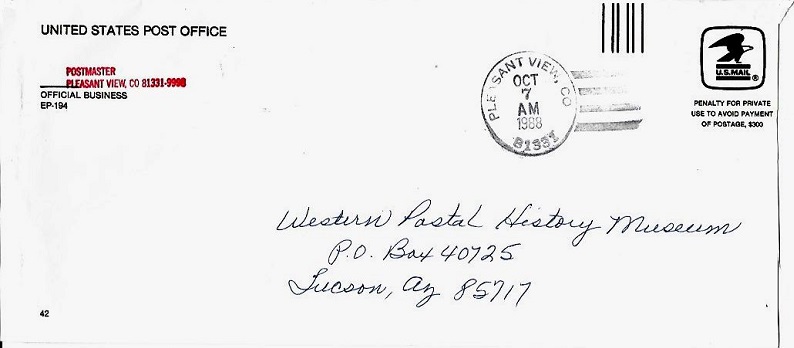 UNITED STATES POST OFFICE
POSTMASTER
PLEASANT VIEW, CO 81331-9998
OFFICIAL BUSINESS
EP-194
PLEASANT VIEW, CO
OCT
7
AM
1988
81331
U.S.MAIL
®
PENALTY FOR PRIVATE
USE TO AVOID PAYMENT
OF POSTAGE, $300
Western Postal History Museum
P.O. Box 40725
Tucson, Az 85717
42